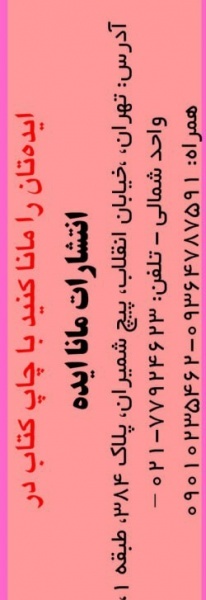 ایده‌تان را مانا کنید با چاپ کتاب در
انتشارات مانا ایده
آدرس: تهران، خیابان انقلاب، پیچ شمیران، پلاک ۳۸۴، طبقه ۱،
واحد شمالی - تلفن: ۷۷۹۲۴۶۲۳-۰۲۱ -
همراه: ۰۹۳۶۴۷۸۷۵۹۱-۰۹۰۱۰۲۳۵۴۶۲